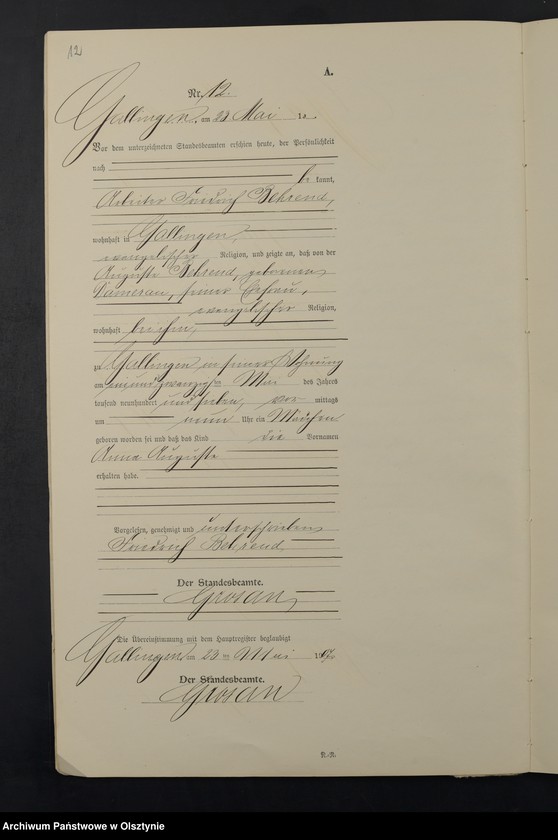 12
A.
Nr. 12.
Gallingen, am 23 Mai 19
Vor dem unterzeichneten Standesbeamten erschien heute, der Persönlichkeit
nach
be kannt,
Arbeiter Friedrich Behrend,
wohnhaft in Gallingen,
evangelischer Religion, und zeigte an, daß von der
Auguste Behrend, geborenen
Damerau, seiner Ehefrau,
evangelischer Religion,
wohnhaft bei ihm,
zu Gallingen in seiner Wohnung
am ein und zwanzigsten Mai des Jahres
tausend neunhundert und sieben, vor mittags
um neun Uhr ein Mädchen
geboren worden sei und daß das Kind die Vornamen
Anna Auguste
erhalten habe.
Vorgelesen, genehmigt und unterschrieben
Friedrich Behrend
Der Standesbeamte.
Grosan
Die Übereinstimmung mit dem Hauptregister beglaubigt
Gallingen, am 23 ten Mai 1907
Der Standesbeamte.
Grosan
Archiwum Państwowe w Olsztynie